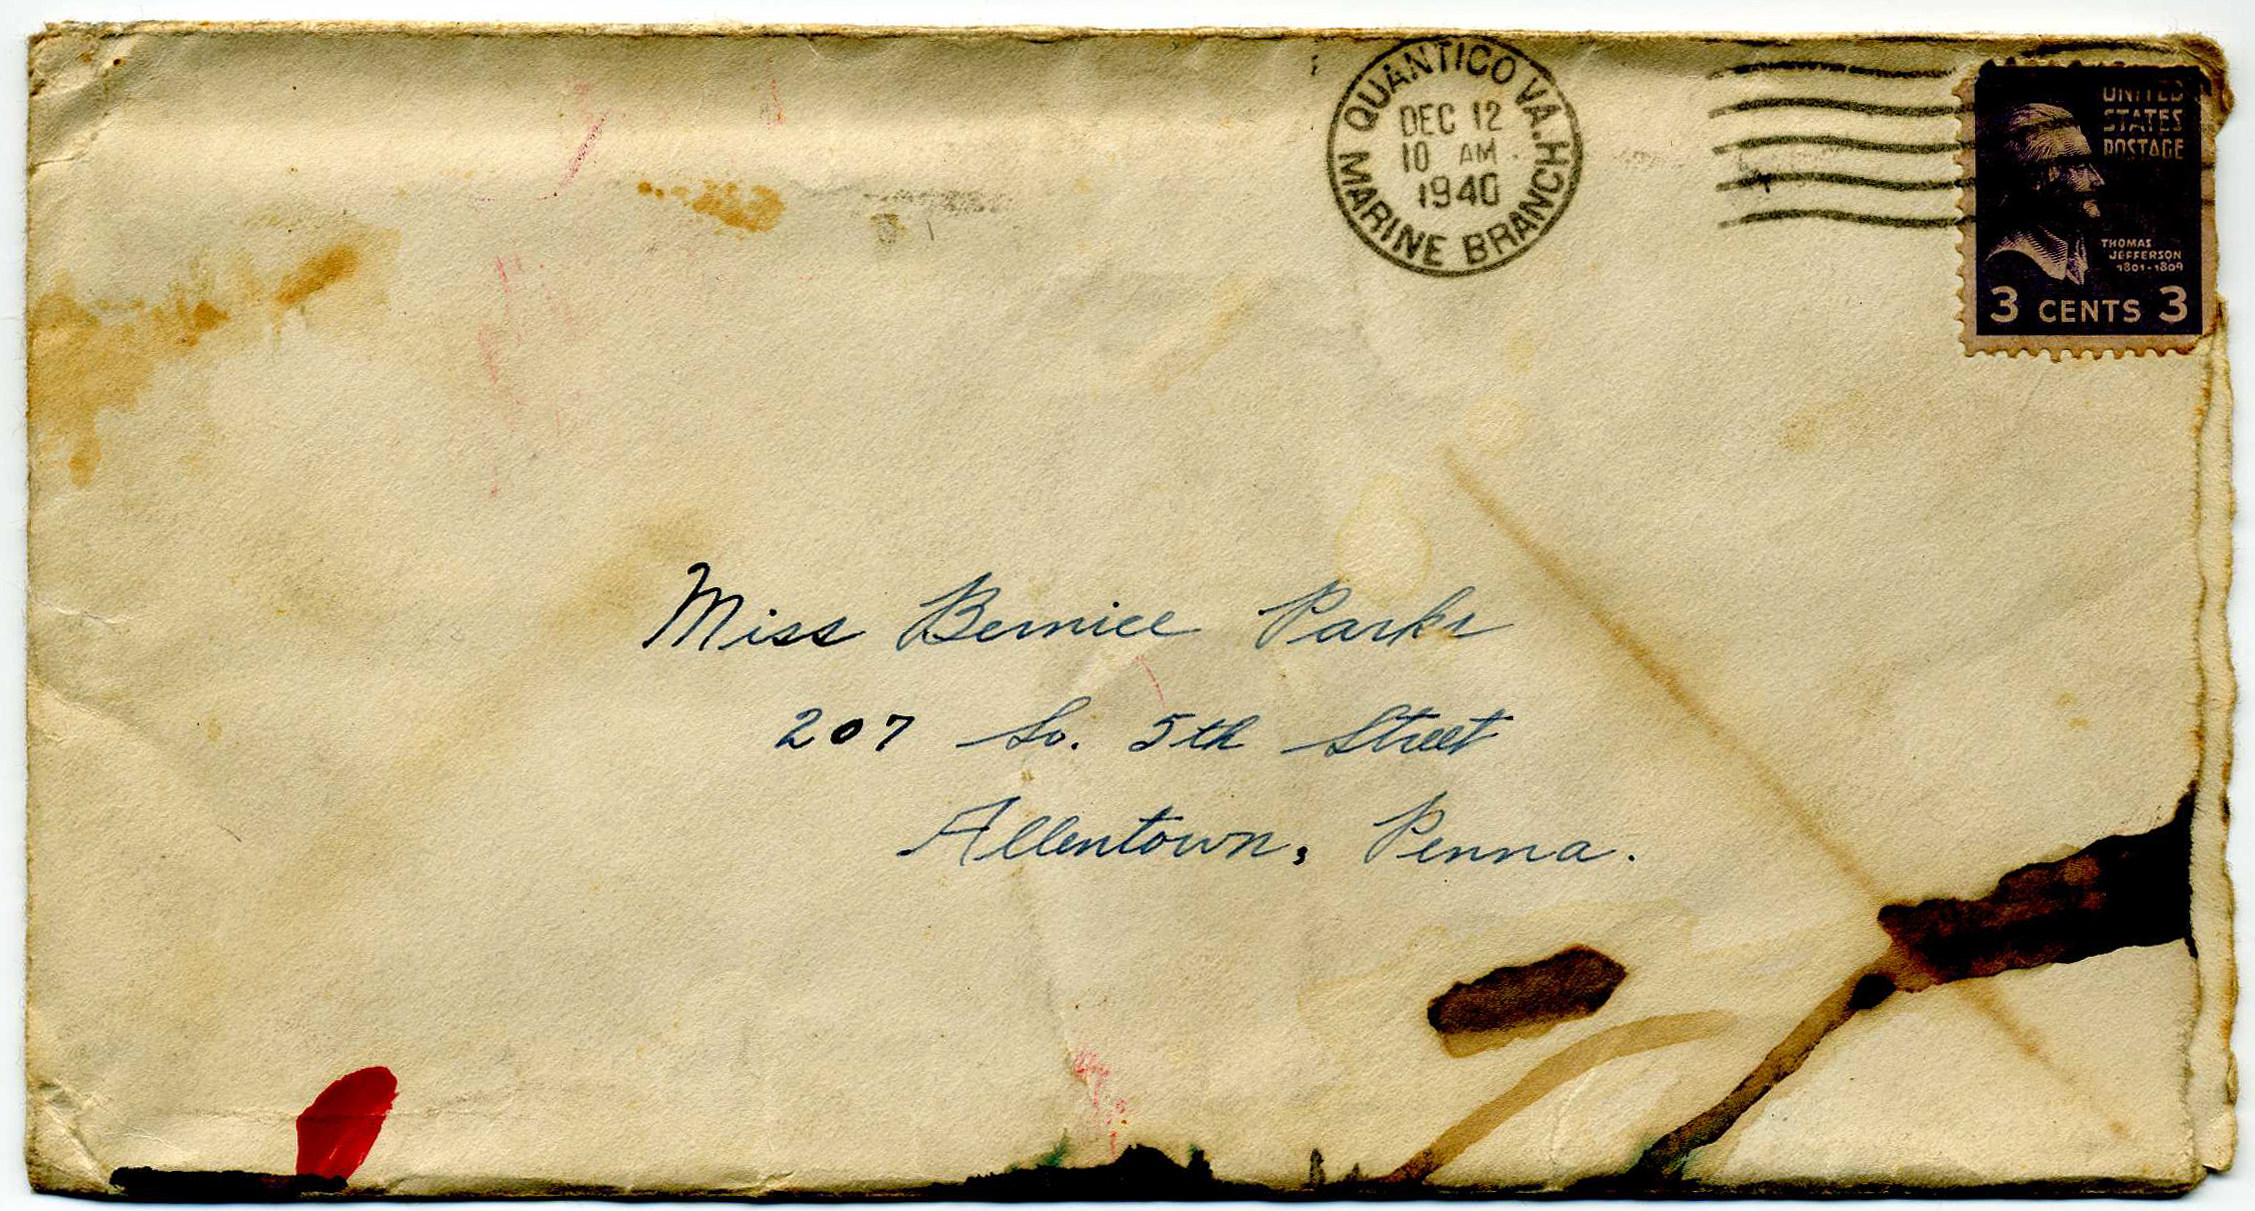 QUANTICO VA.
MARINE BRANCH
DEC 12
10 AM
1940
UNITED
STATES
POSTAGE
THOMAS
JEFFERSON
1801-1809
3 CENTS 3
Miss Bernice Parks
207 So. 5th Street
Allentown, Penna.